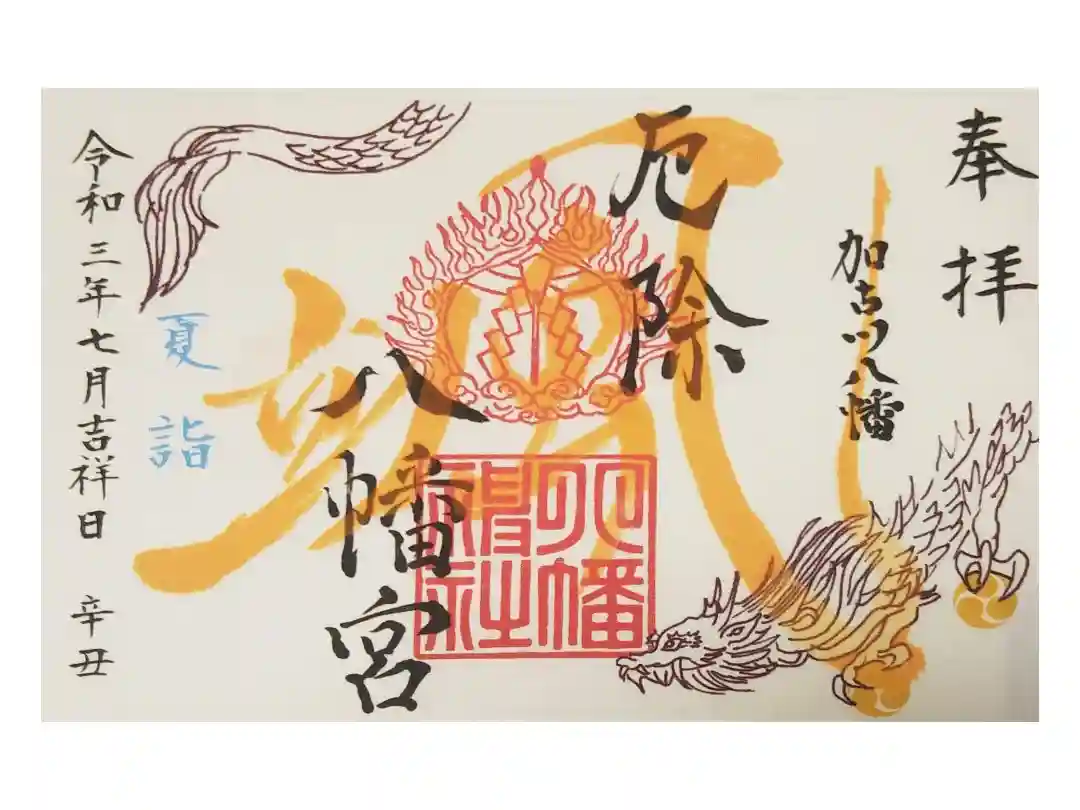 奉拝
加古川八幡
厄除
八幡宮
八幡
神社
夏詣
令和三年七月吉祥日 辛丑